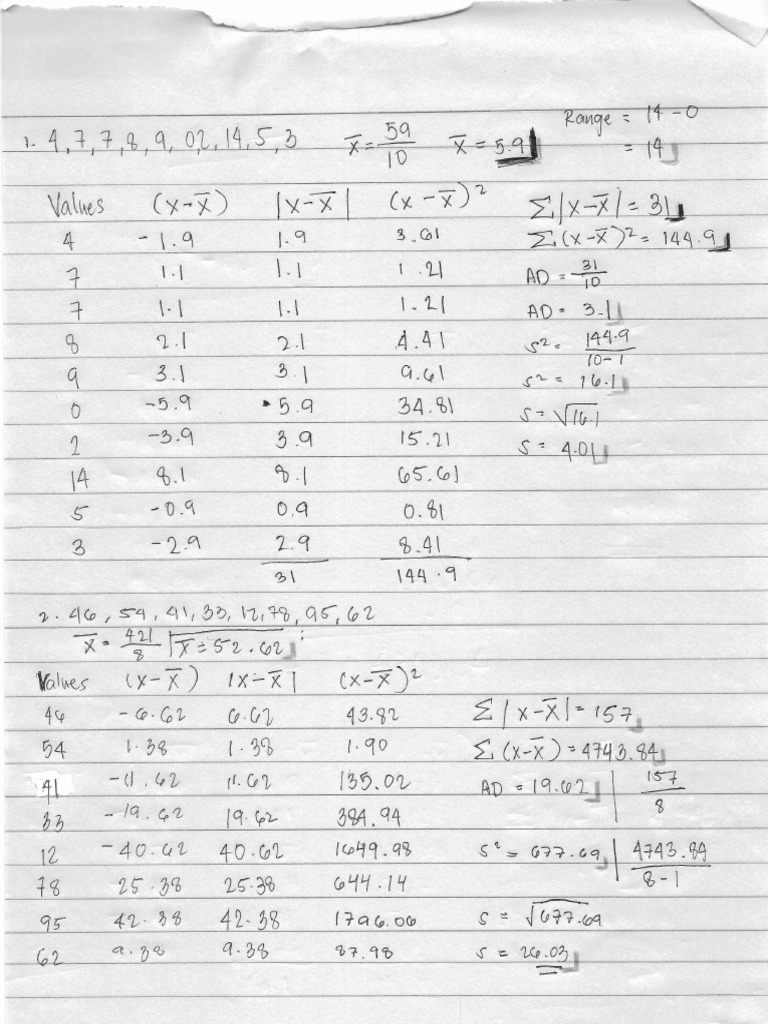 1. 4, 7, 7, 8, 9, 0 2, 14, 5, 3 x̄ = 59/10 x̄ = 5.9 Range = 14 - 0
= 14
Values (x - x̄) |x - x̄| (x - x̄)² Σ|x - x̄| = 31
4 -1.9 1.9 3.61 Σ(x - x̄)² = 144.9
7 1.1 1.1 1.21 AD = 31/10
7 1.1 1.1 1.21 AD = 3.1
8 2.1 2.1 4.41 s² = 144.9/10-1
9 3.1 3.1 9.61 s² = 16.1
0 -5.9 5.9 34.81 s = √16.1
2 -3.9 3.9 15.21 s = 4.01
14 8.1 8.1 65.61
5 -0.9 0.9 0.81
3 -2.9 2.9 8.41
31 144.9
2. 46, 54, 41, 33, 12, 78, 95, 62
x̄ = 421/8 x̄ = 52.62
Values (x - x̄) |x - x̄| (x - x̄)²
46 -6.62 6.62 43.82 Σ|x - x̄| = 157
54 1.38 1.38 1.90 Σ(x - x̄) = 4743.84
41 -11.62 11.62 135.02 AD = 19.62 | 157/8
33 -19.62 19.62 384.94
12 -40.62 40.62 1649.98 s² = 677.69 | 4743.84/8-1
78 25.38 25.38 644.14
95 42.38 42.38 1796.06 s = √677.69
62 9.38 9.38 87.98 s = 26.03